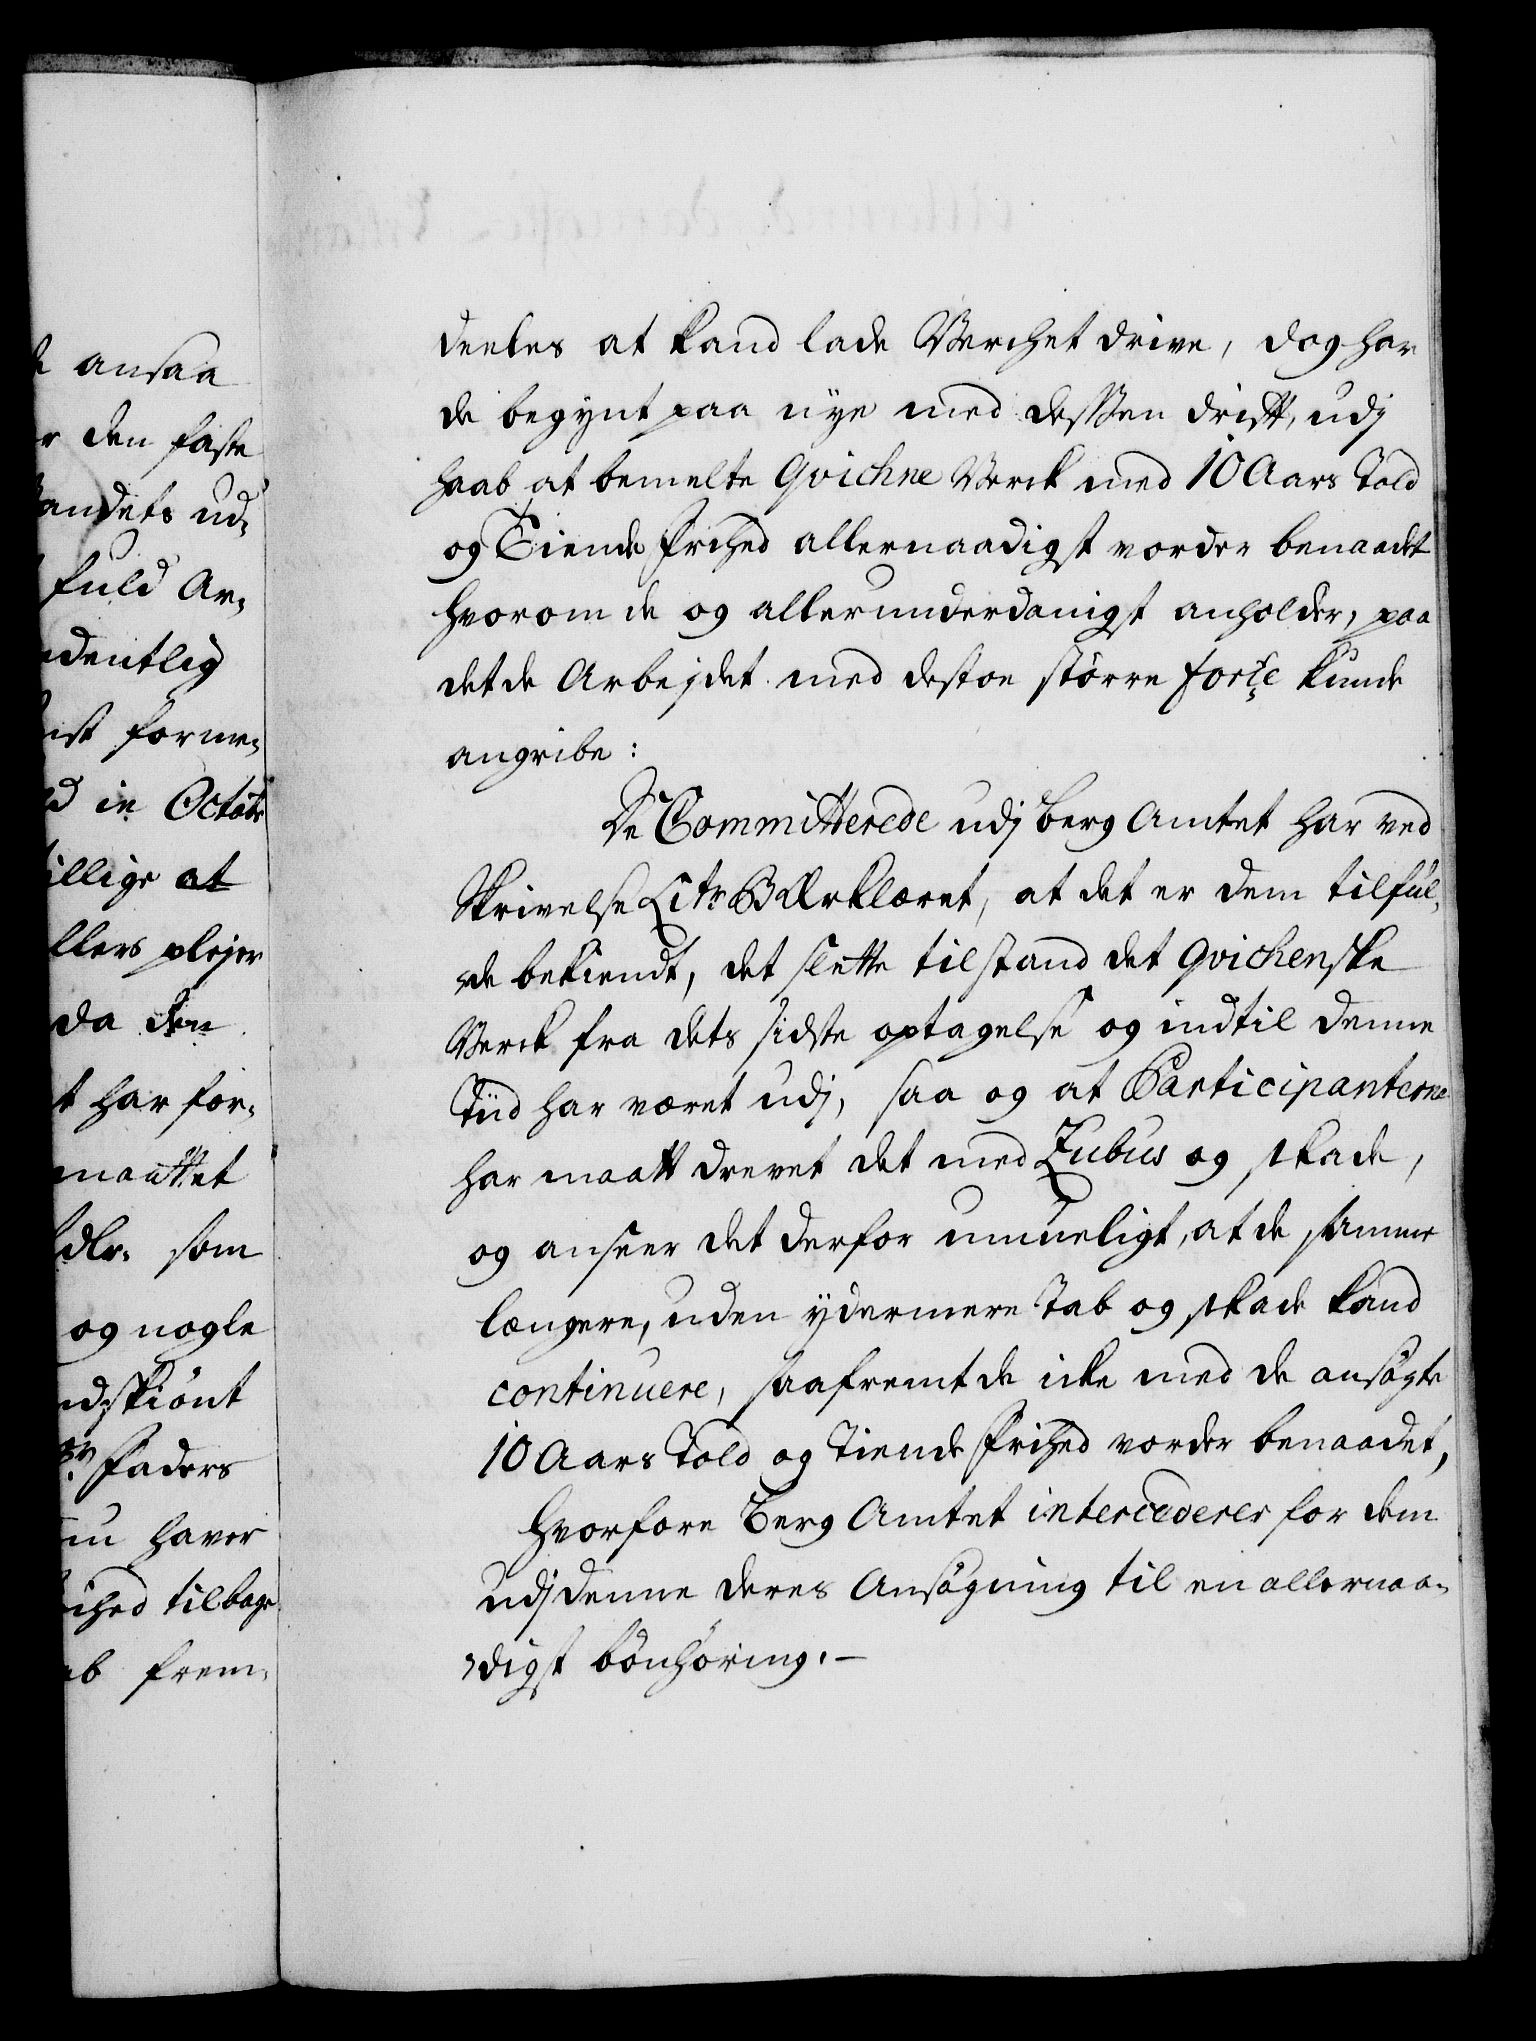 ansaa
r den faste
andets ud-
fuld Ar-
dentlig
ist forme-
d in Octobr
illige at
llers plejer
da den
t har for-
maattet
dlr. som
og nogle
ndskiønt
Faders
nu haver
ihed tilbage
ab frem-
deeles at kand lade Werchet drive, dog har
de begynt paa nye med dessen drift, udj
haab at bemelte Qvichne Werck med 10 Aars Told
og Tiende Frihed allernaadigst vorder benaadet
hvorom de og allerunderdanigst anholder, paa
det de Arbejdet med destoe större force kunde
angribe:
De Committerede udj Berg Amtet har ved
Skrivelse Litr B Erklæret, at det er dem tilful-
de bekiendt, det slette tilstand det Qvichenske
Werck fra dets sidste optagelse og indtil denne
Tiid har været udj, saa og at Participanterne
har maatt drevet det med Zubus og skade,
og anseer det derfor umueligt, at de samme
længere, uden ydermere Tab og skade kand
continuere, saafremt de icke med de ansøgte
10 Aars Told og Tiende Frihed vorder benaadet,
Hvorfore Berg Amtet intercederer for dem
udj denne deres Ansøgning til en allernaa-
digst bönhöring.-